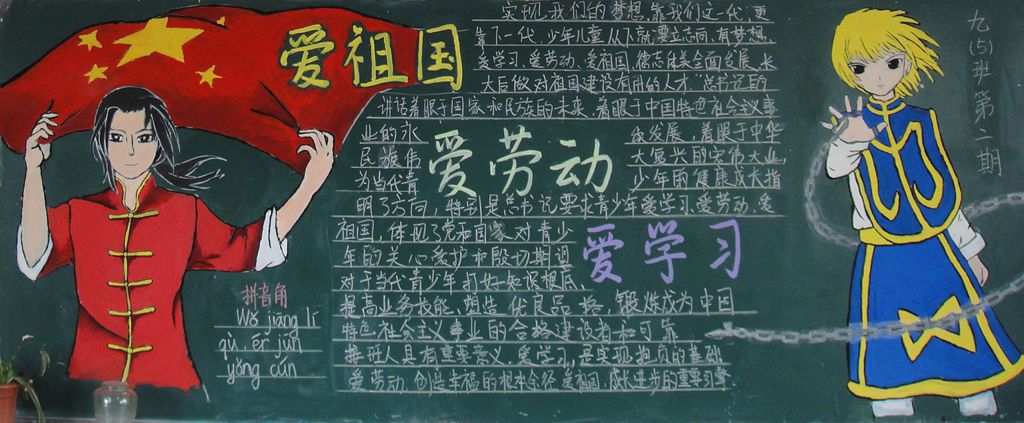 爱祖国
实现我们的梦想,靠我们这一代,更
靠下一代。少年儿童从小就要立志向、有梦想,
爱学习、爱劳动、爱祖国,德智体美全面发展,长
大后做对祖国建设有用的人才。总书记的
讲话着眼于国家和民族的未来,着眼于中国特色社会主义事
业的永 续发展,着眼于中华
民族伟 大复兴的宏伟大业,
为当代青 少年的健康成长指
爱劳动
明了方向,特别是总书记要求青少年爱学习、爱劳动、爱
祖国,体现了党和国家对青少
年的关心爱护和殷切期望
爱学习
对于当代青少年打好知识根底,
提高业务技能,塑造优良品格,锻炼成为中国
特色社会主义事业的合格建设者和可靠
接班人具有重要意义。爱学习,是实现抱负的基础
爱劳动,创造幸福的根本途径,爱祖国,成长进步的重要
拼音角
Wǒ jiāng lí
qù, ér jūn
yǒng cún
九(5)班第二期